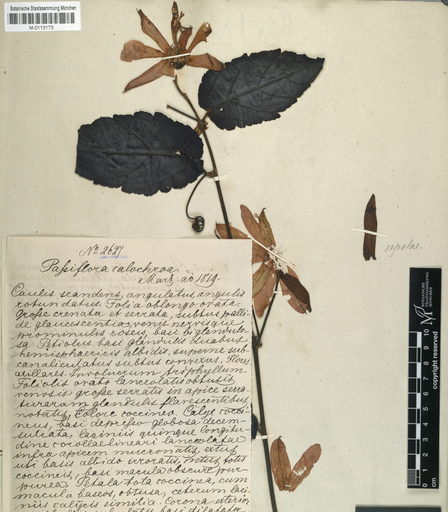 Botanische Staatssammlung München
M-0113173
No 2627
Passiflora calochroa
Martz ao 1819.
Caulis scandens, angulatus angulis
rotundatus. Folia oblongo ovata
grosse crenata et serrata, subtus palli-
de glaucescentia, venis nervisque
prominulis roseis, basi biglandulo-
sa. Petiolus basi glandulis duabus,
hemisphaericis albidis, superne sub-
canaliculatus subtus convexus. Flores
axillares. Involucrum triphyllum.
Foliolis ovato lanceolatis obtusis,
venosis grosse serratis in apice serra-
turarum glandulis flavescentibus
notatis, colore coccineo. Calyx cocci-
neus, basi depresso globosa decem-
sulcata, laciniis quinque longitu-
dine corollae lineari lanceolatae
infra apicem mucronatis, extus
ubi basis albido
coccineis, basi macula obscure pur-
purea. Petala tota coccinea, cum
macula baseos, obtusa, ceterum laci-
niis calycis similia. Corona exterior
sepalae.
BOTANISCHE STAATSSAMMLUNG MÜNCHEN
0 1 2 3 4 5 6 7 8 9 10